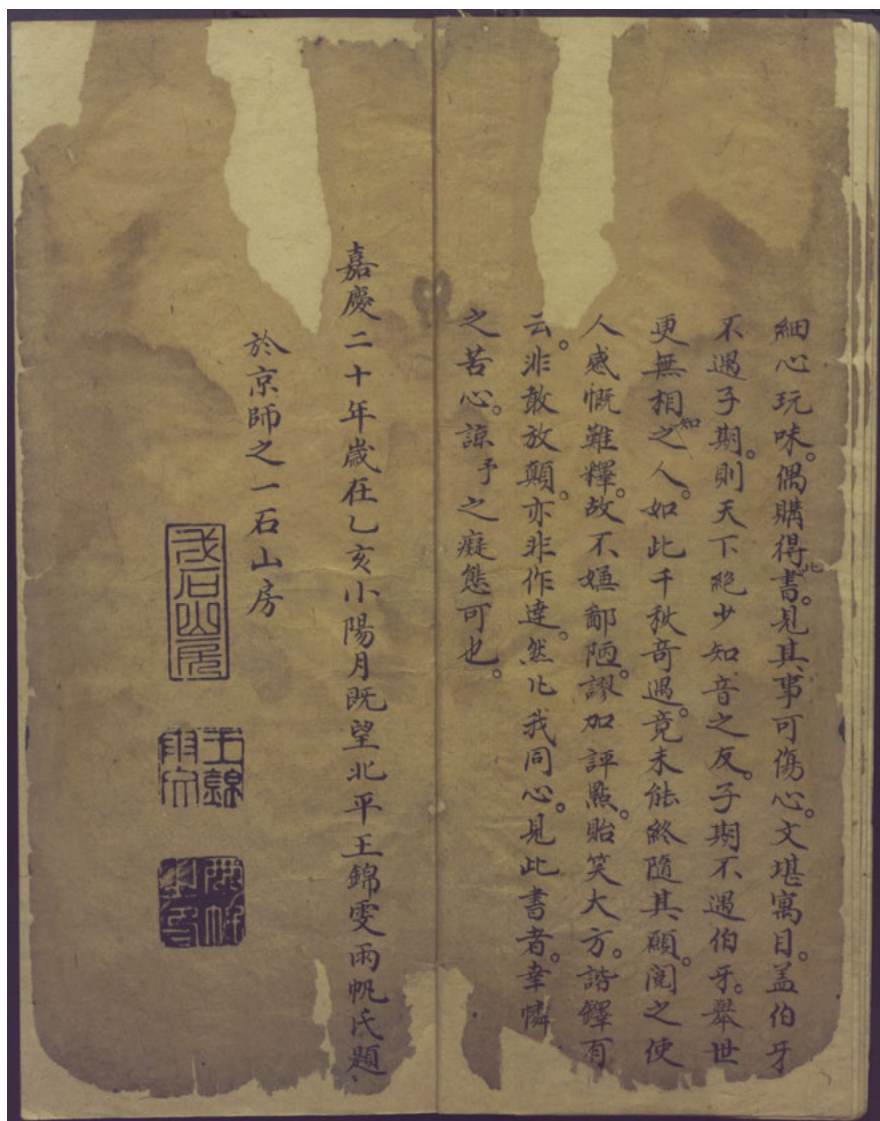 細心玩味。偶購得此書。見其事可傷心。文堪寓目。盖伯牙
不遇子期。則天下絕少知音之友。子期不遇伯牙。舉世
更無相知之人。如此千秋竒遇。竟未能終隨其願。閱之使
人感慨難釋。故不嫌鄙陋。謬加評點。貽笑大方。諧鐸有
云。非敢放顛。亦非作達。然凡我同心。見此書者。幸憐
之苦心。諒予之癡態可也。
嘉慶二十年歲在乙亥小陽月既望北平王錦雯雨帆氏題
於京師之一石山房
弌石山房
王錦雯
雨帆